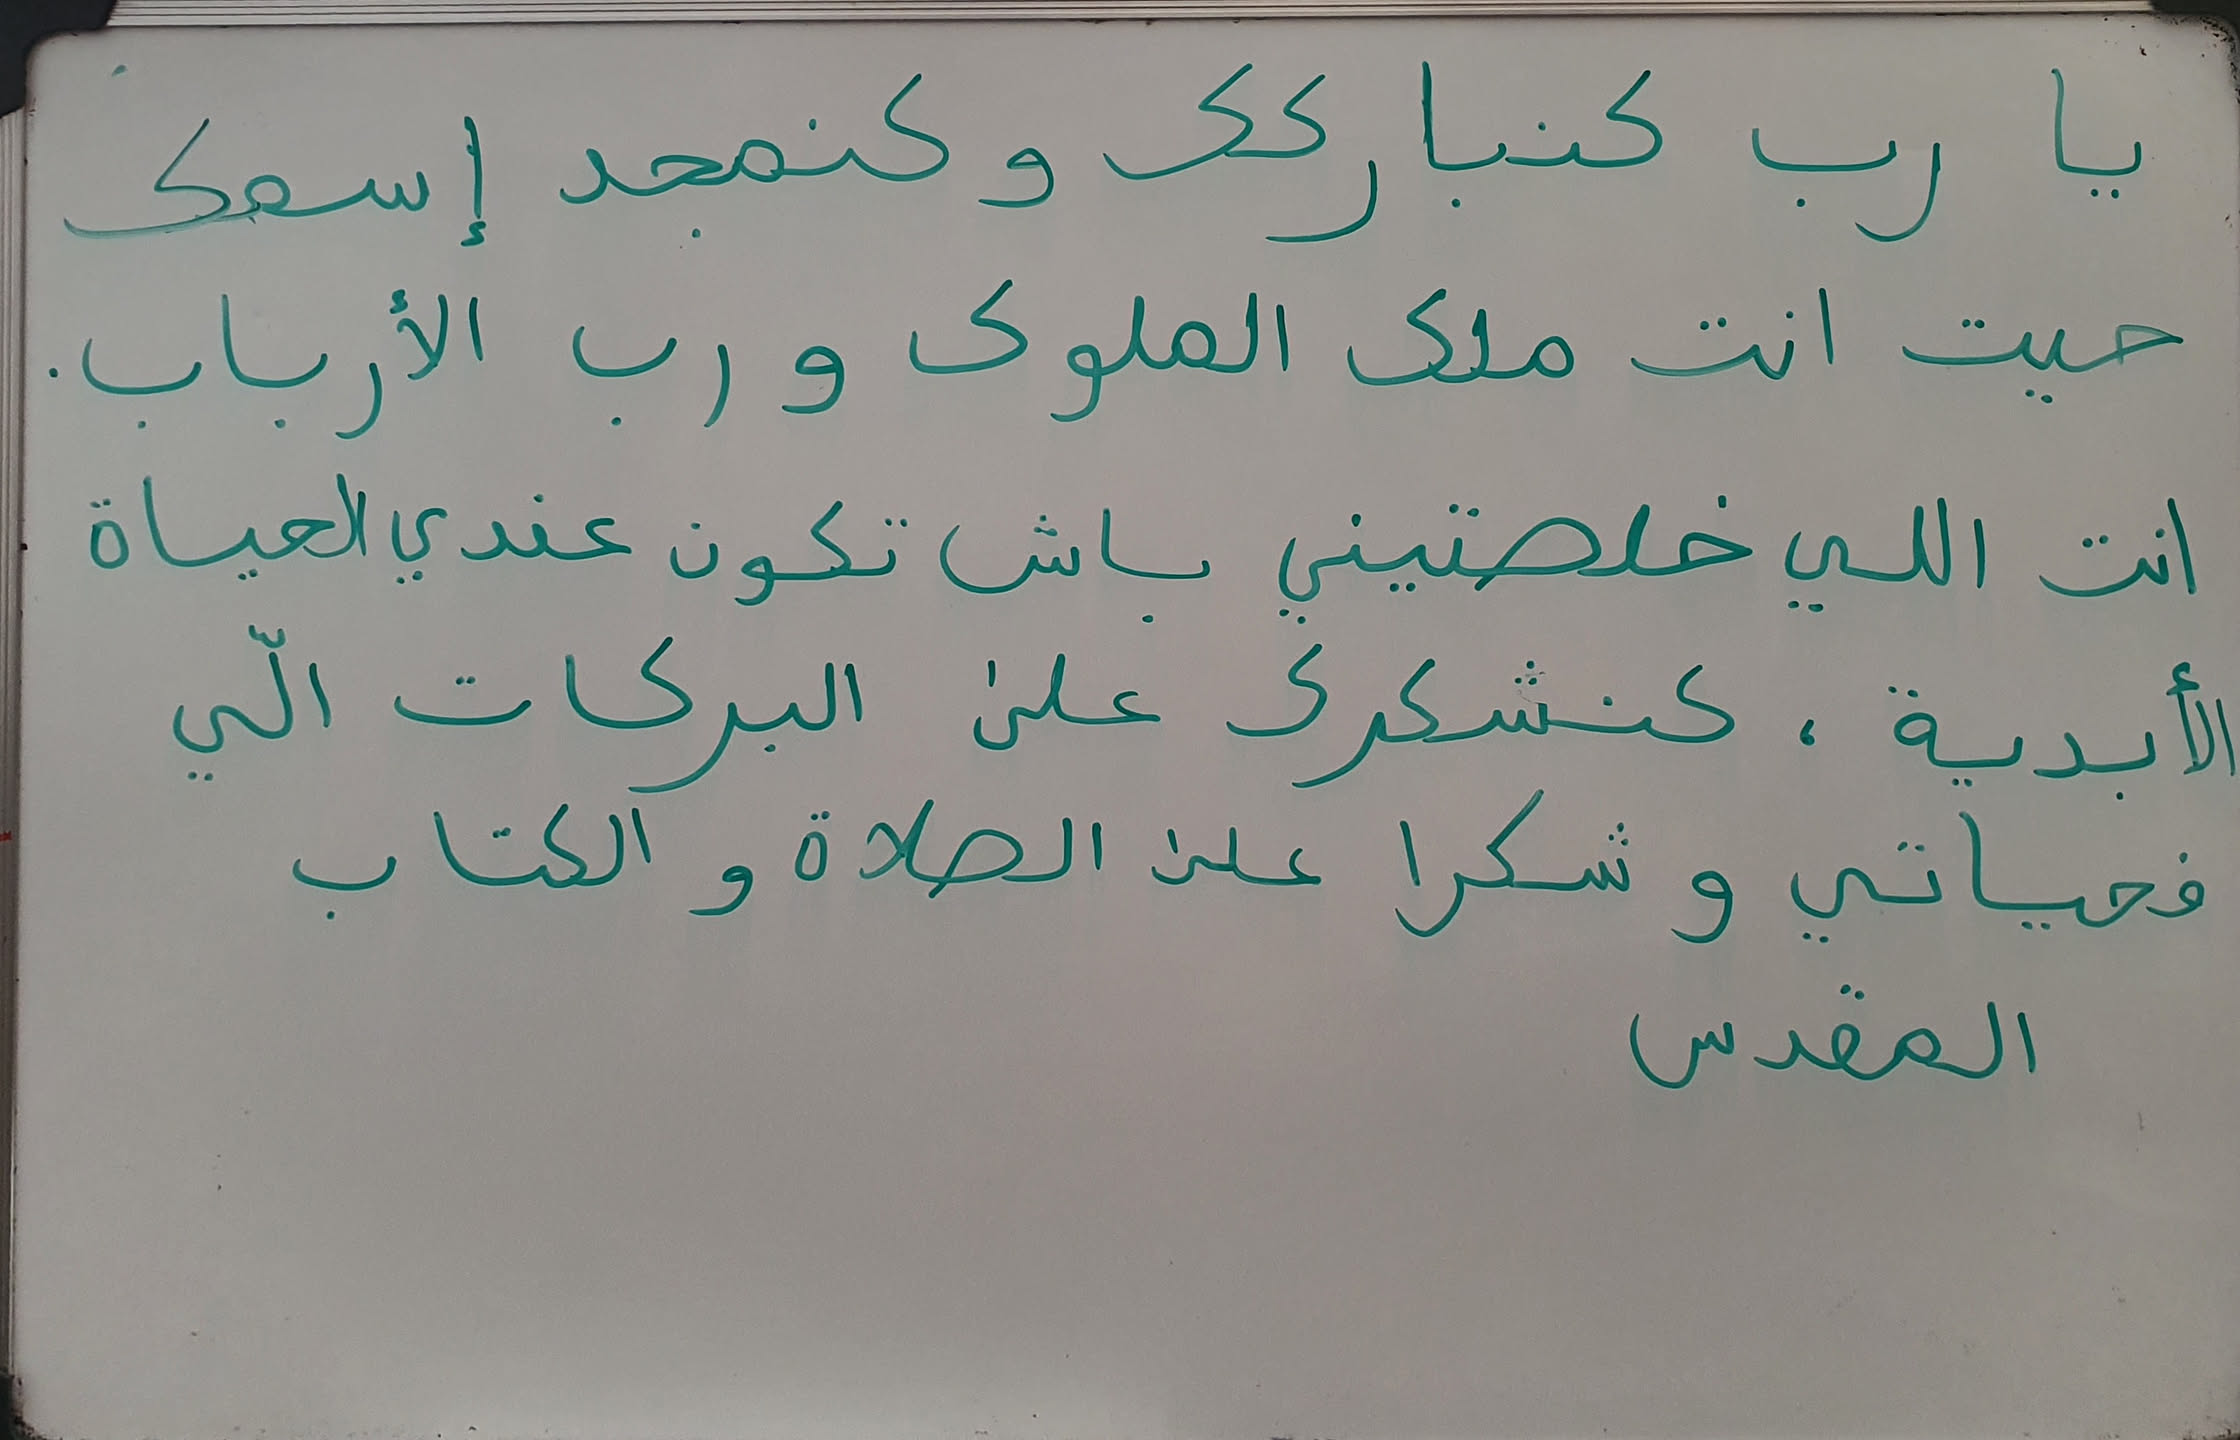 يا رب كنباركك وكنمجد إسمك
حيت انت ملك الملوك و رب الأرباب.
انت اللي خلصتيني باش تكون عندي الحياة
الأبدية، كنشكرك على البركات الّي
فحياتي و شكرا على الصلاة و الكتاب
المقدس